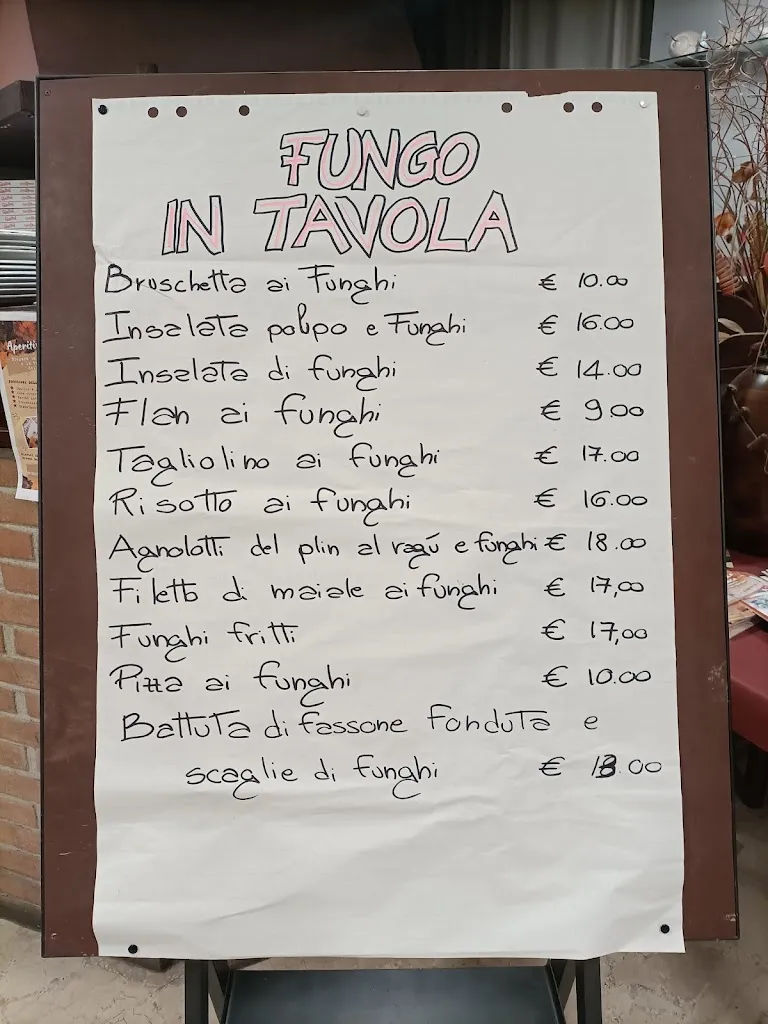 FUNGO
IN TAVOLA
Bruschetta ai Funghi € 10.00
Insalata polpo e Funghi € 16.00
Insalata di funghi € 14.00
Flan ai funghi € 9.00
Tagliolino ai funghi € 17.00
Risotto ai funghi € 16.00
Agnolotti del plin al ragú e funghi € 18.00
Filetto di maiale ai funghi € 17,00
Funghi fritti € 17,00
Pizza ai funghi € 10.00
Battuta di fassone fonduta e
scaglie di funghi €
Aperiti